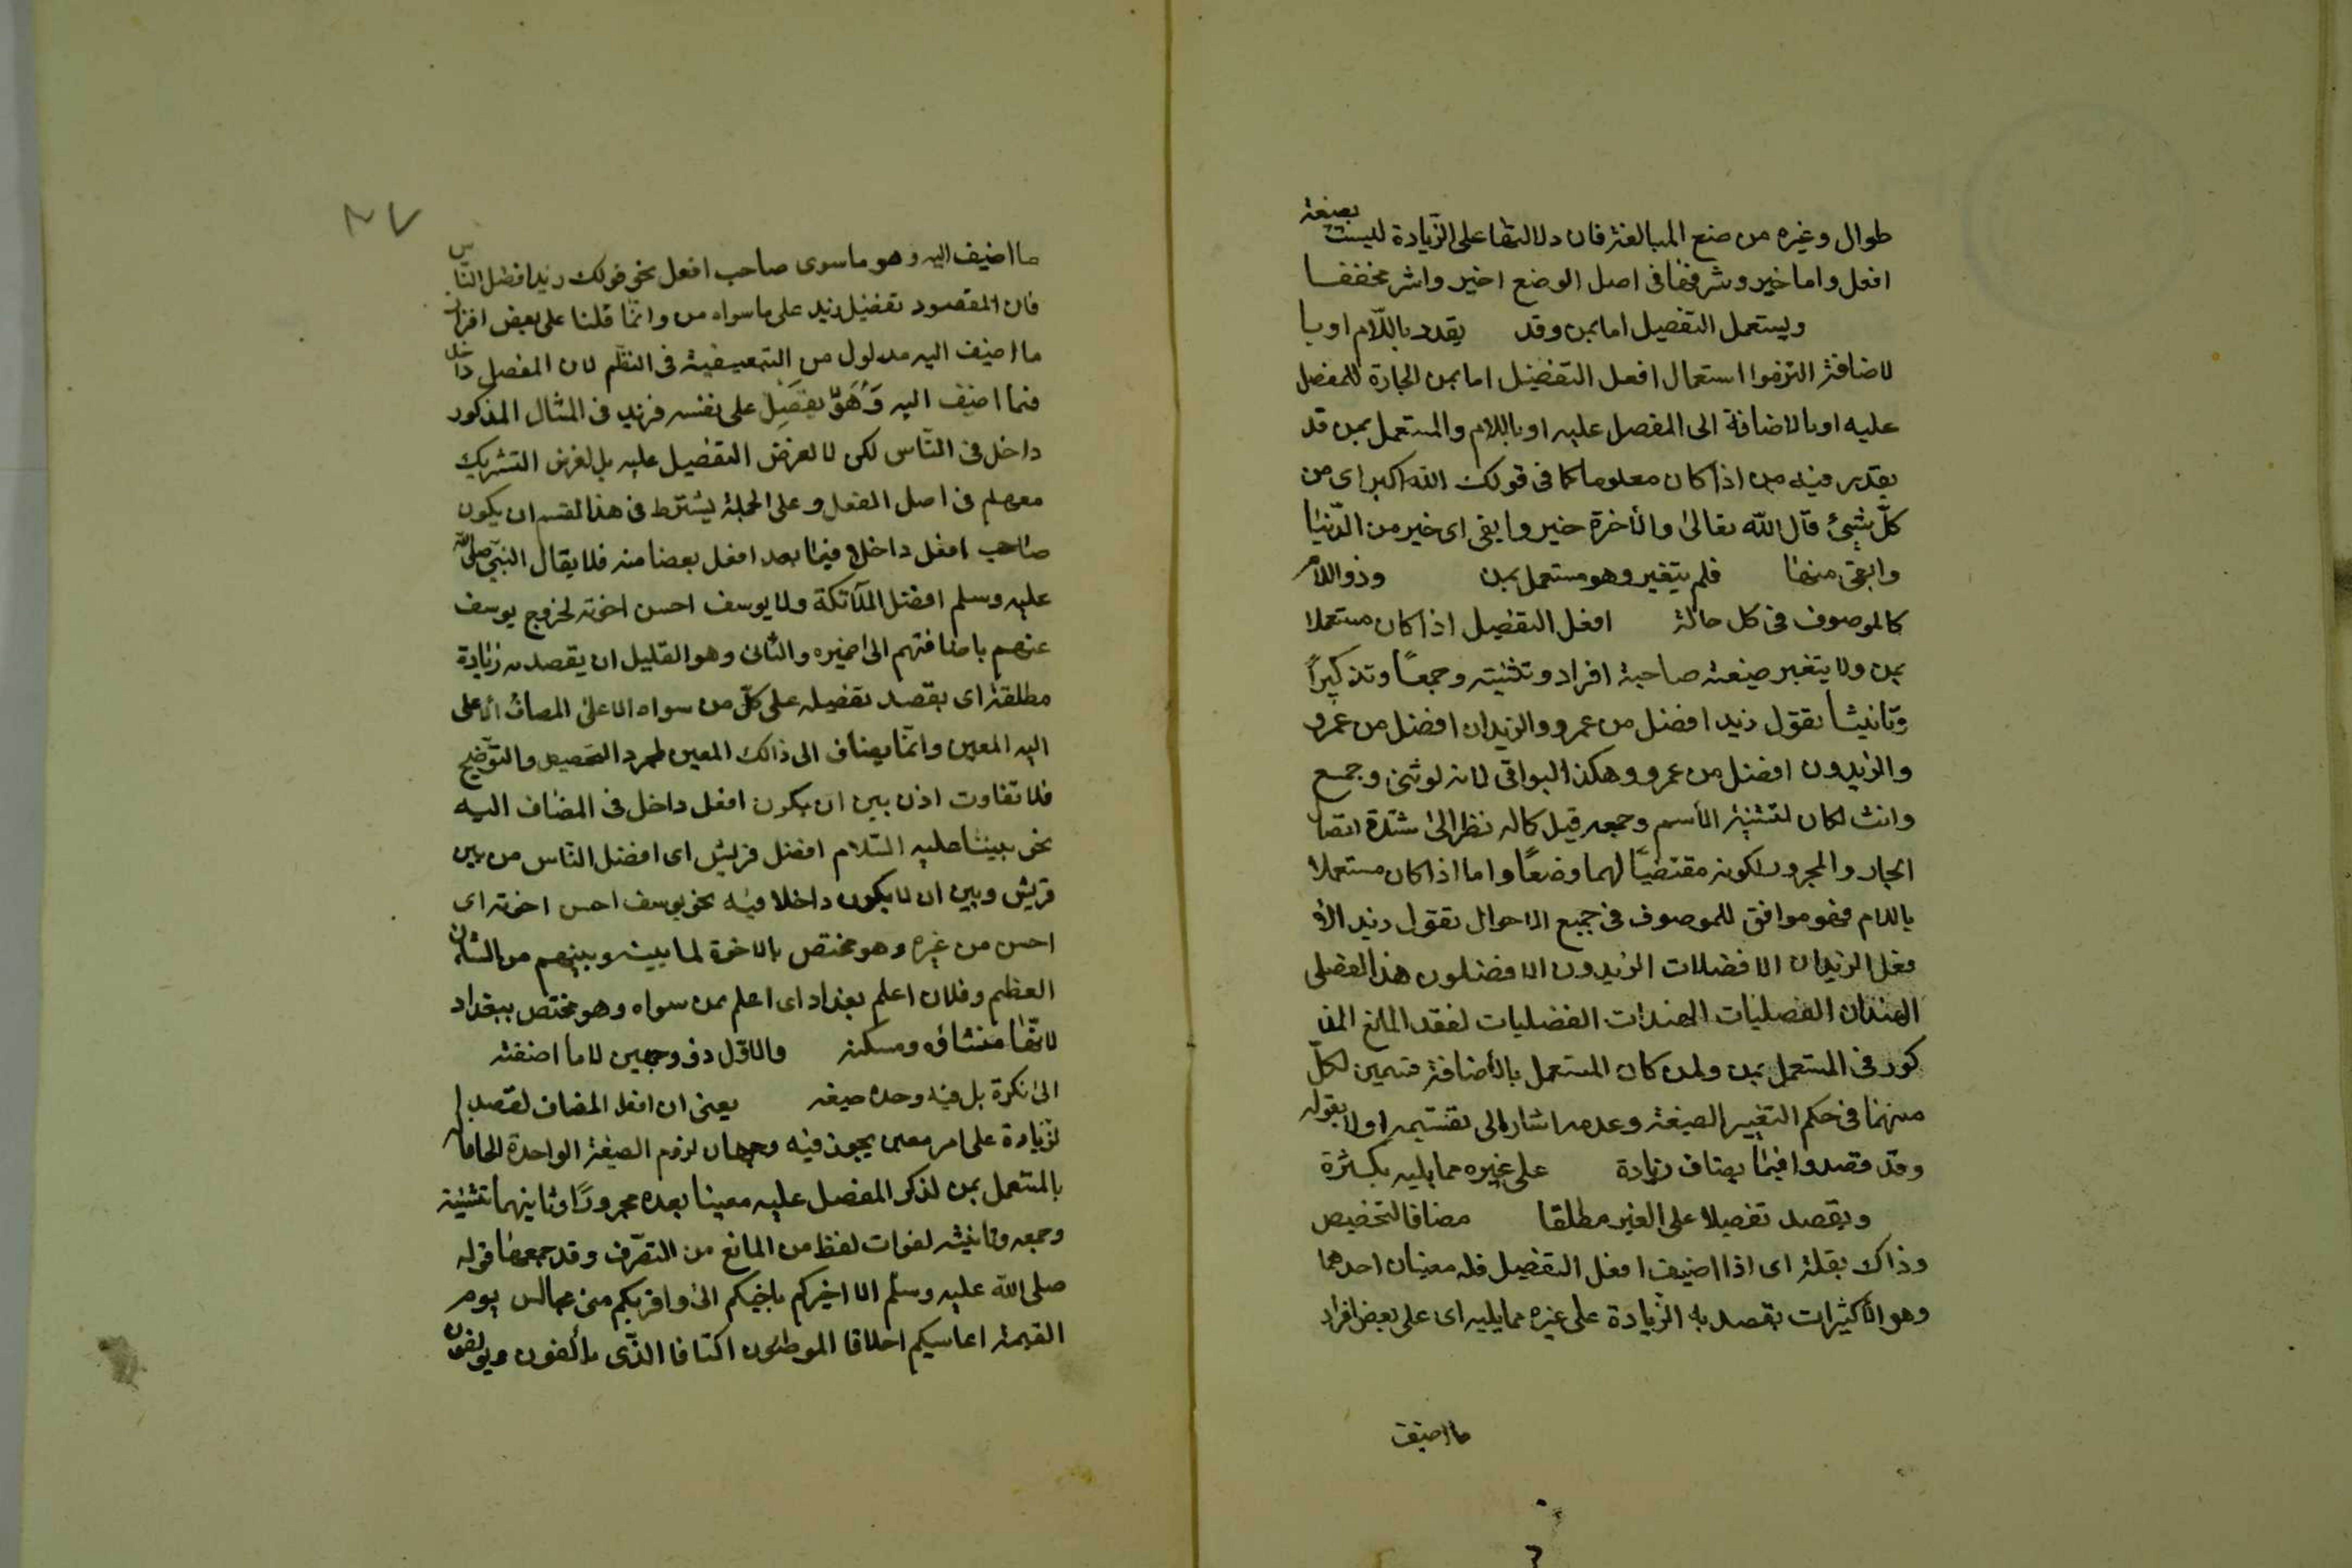 طوال وغيره من صنع المبالغة فان دلالتها على الزّيادة ليست بصيغة
افعل واما خير وشر فهما فى اصل الوضع اخير واشر مخففا
ويستعمل التفصيل اما بمن وقد يقدد باللّام او با
لاضافة التزموا استعمال افعل التفضيل اما بمن الجارة للمفصل
عليه او بالاضافة الى المفصل عليه او باللام والمستعمل بمن قد
يقدر فيه من اذا كان معلوما كما فى قولك الله اكبر اى من
كلّ شيئ قال الله تعالى والأخرة خير وابقى اى خير من الدّنيا
وابقى منها فلم يتغير وهو مستعمل بمن وذو اللام
كالموصوف فى كل حالة افعل التفضيل اذا كان مستعملا
بمن ولا يتغير صيغة صاحبة افراد وتثنيته وجمعًا وتذكيرًا
وتانيثا تقول زيد افضل من عمرو والزيدان افضل من عمرو
والزيدون افضل من عمرو وهكذا البواقى لانه لو ثنى وجمع
وانث لكان لتثنية الأسم وجمعه قبل كماله نظرا الى شدّة اتصا
الجار والمجرور لكونه مقتضيًا لهما وضعًا واما اذا كان مستعملا
باللام فهو موافق للموصوف فى جميع الاحوال تقول زيد الأ
فعل الزيدان الافضلات الزيدون الافضلون هذا الفضلى
الهندان الفضليات الهندات الفضليات لفقد المانع المذ
كور فى المستعمل بمن ولمن كان المستعمل بالأضافة قسمين لكلّ
منهما فى حكم التغيير الصيغة وعدمه اشار الى تقسيمه اولا بقوله
وقد قصدوا فيما يضاف زيادة على غيره مما يليه بكثرة
ويقصد تفصيلا على الغير مطلقا مضافا لتخصيص
وذاك بقلة اى اذا اضيف افعل التفضيل فله معنيان احدهما
وهو الأكثر ان تقصد به الزّيادة على غيره مما يليه اى على بعض افراد
ما اضيف
ما اضيف اليه وهو ما سوى صاحب افعل نحو قولك زيد افضل النّاس
فان المقصود تفضيل زيد على ما سواه من وانّما قلنا على بعض افراد
ما اضيف اليه مدلول من التبعيضية فى النظم لان المفصل داخل
فيما اضيف اليه على نفسه فزيد فى المثال المذكور
داخل فى النّاس لكن لا لغرض التفضيل عليه بل لغرض التشريك
معهم فى اصل الفعل وعلى الجملة يشترط فى هذا القسم ان يكون
صاحب افعل داخلا فيما بعد افعل بعضا منه فلا يقال النبيّ صلى الله
عليه وسلم افضل الملآئكة ولا يوسف احسن اخوته لخروج يوسف
عنهم باضافتهم الى ضميره والثانى وهو القليل ان يقصد به زيادة
مطلقة اى يقصد تفضيله على كلّ من سواه لا على المضاف لا على
اليه المعين وانّما يضاف الى ذالك المعين لمجرد التخصيص والتوّضيح
فلا تفاوت اذن بين ان يكون افعل داخل فى المضاف اليه
نحو نبينا عليه السّلام افضل قريش اى افضل النّاس من بين
قريش وبين ان لا يكون داخلا فيه نحو يوسف احسن اخوته اى
احسن من غيره وهو مختص بالاخوة لما بينه وبينهم من الشان
العظم وفلان اعلم بغداد اى اعلم من سواه وهو مختص ببغداد
لانّها منشاؤه ومسكنه والاوّل ذو وجهين لا ما اضفته
الى نكرة بل فيه وحده صيغه يعنى ان افعل المضاف لقصد ا
لزّيادة على امر معين يجوز فيه وجهان لزوم الصيغة الواحدة الحاقا
بالمستعمل بمن لذكر المفضل عليه معينا بعده مجرورًا وثانيهما تثنيته
وجمعه وتانيثه لفوات لفظ من المانع من التصرّف وقد جمعهما قوله
صلى الله عليه وسلم الا اخبركم باحبكم الىّ واقربكم منى مجالس يوم
القيمة احاسنكم اخلاقا الموطئون اكنافا الذّى يألفون ويولفون